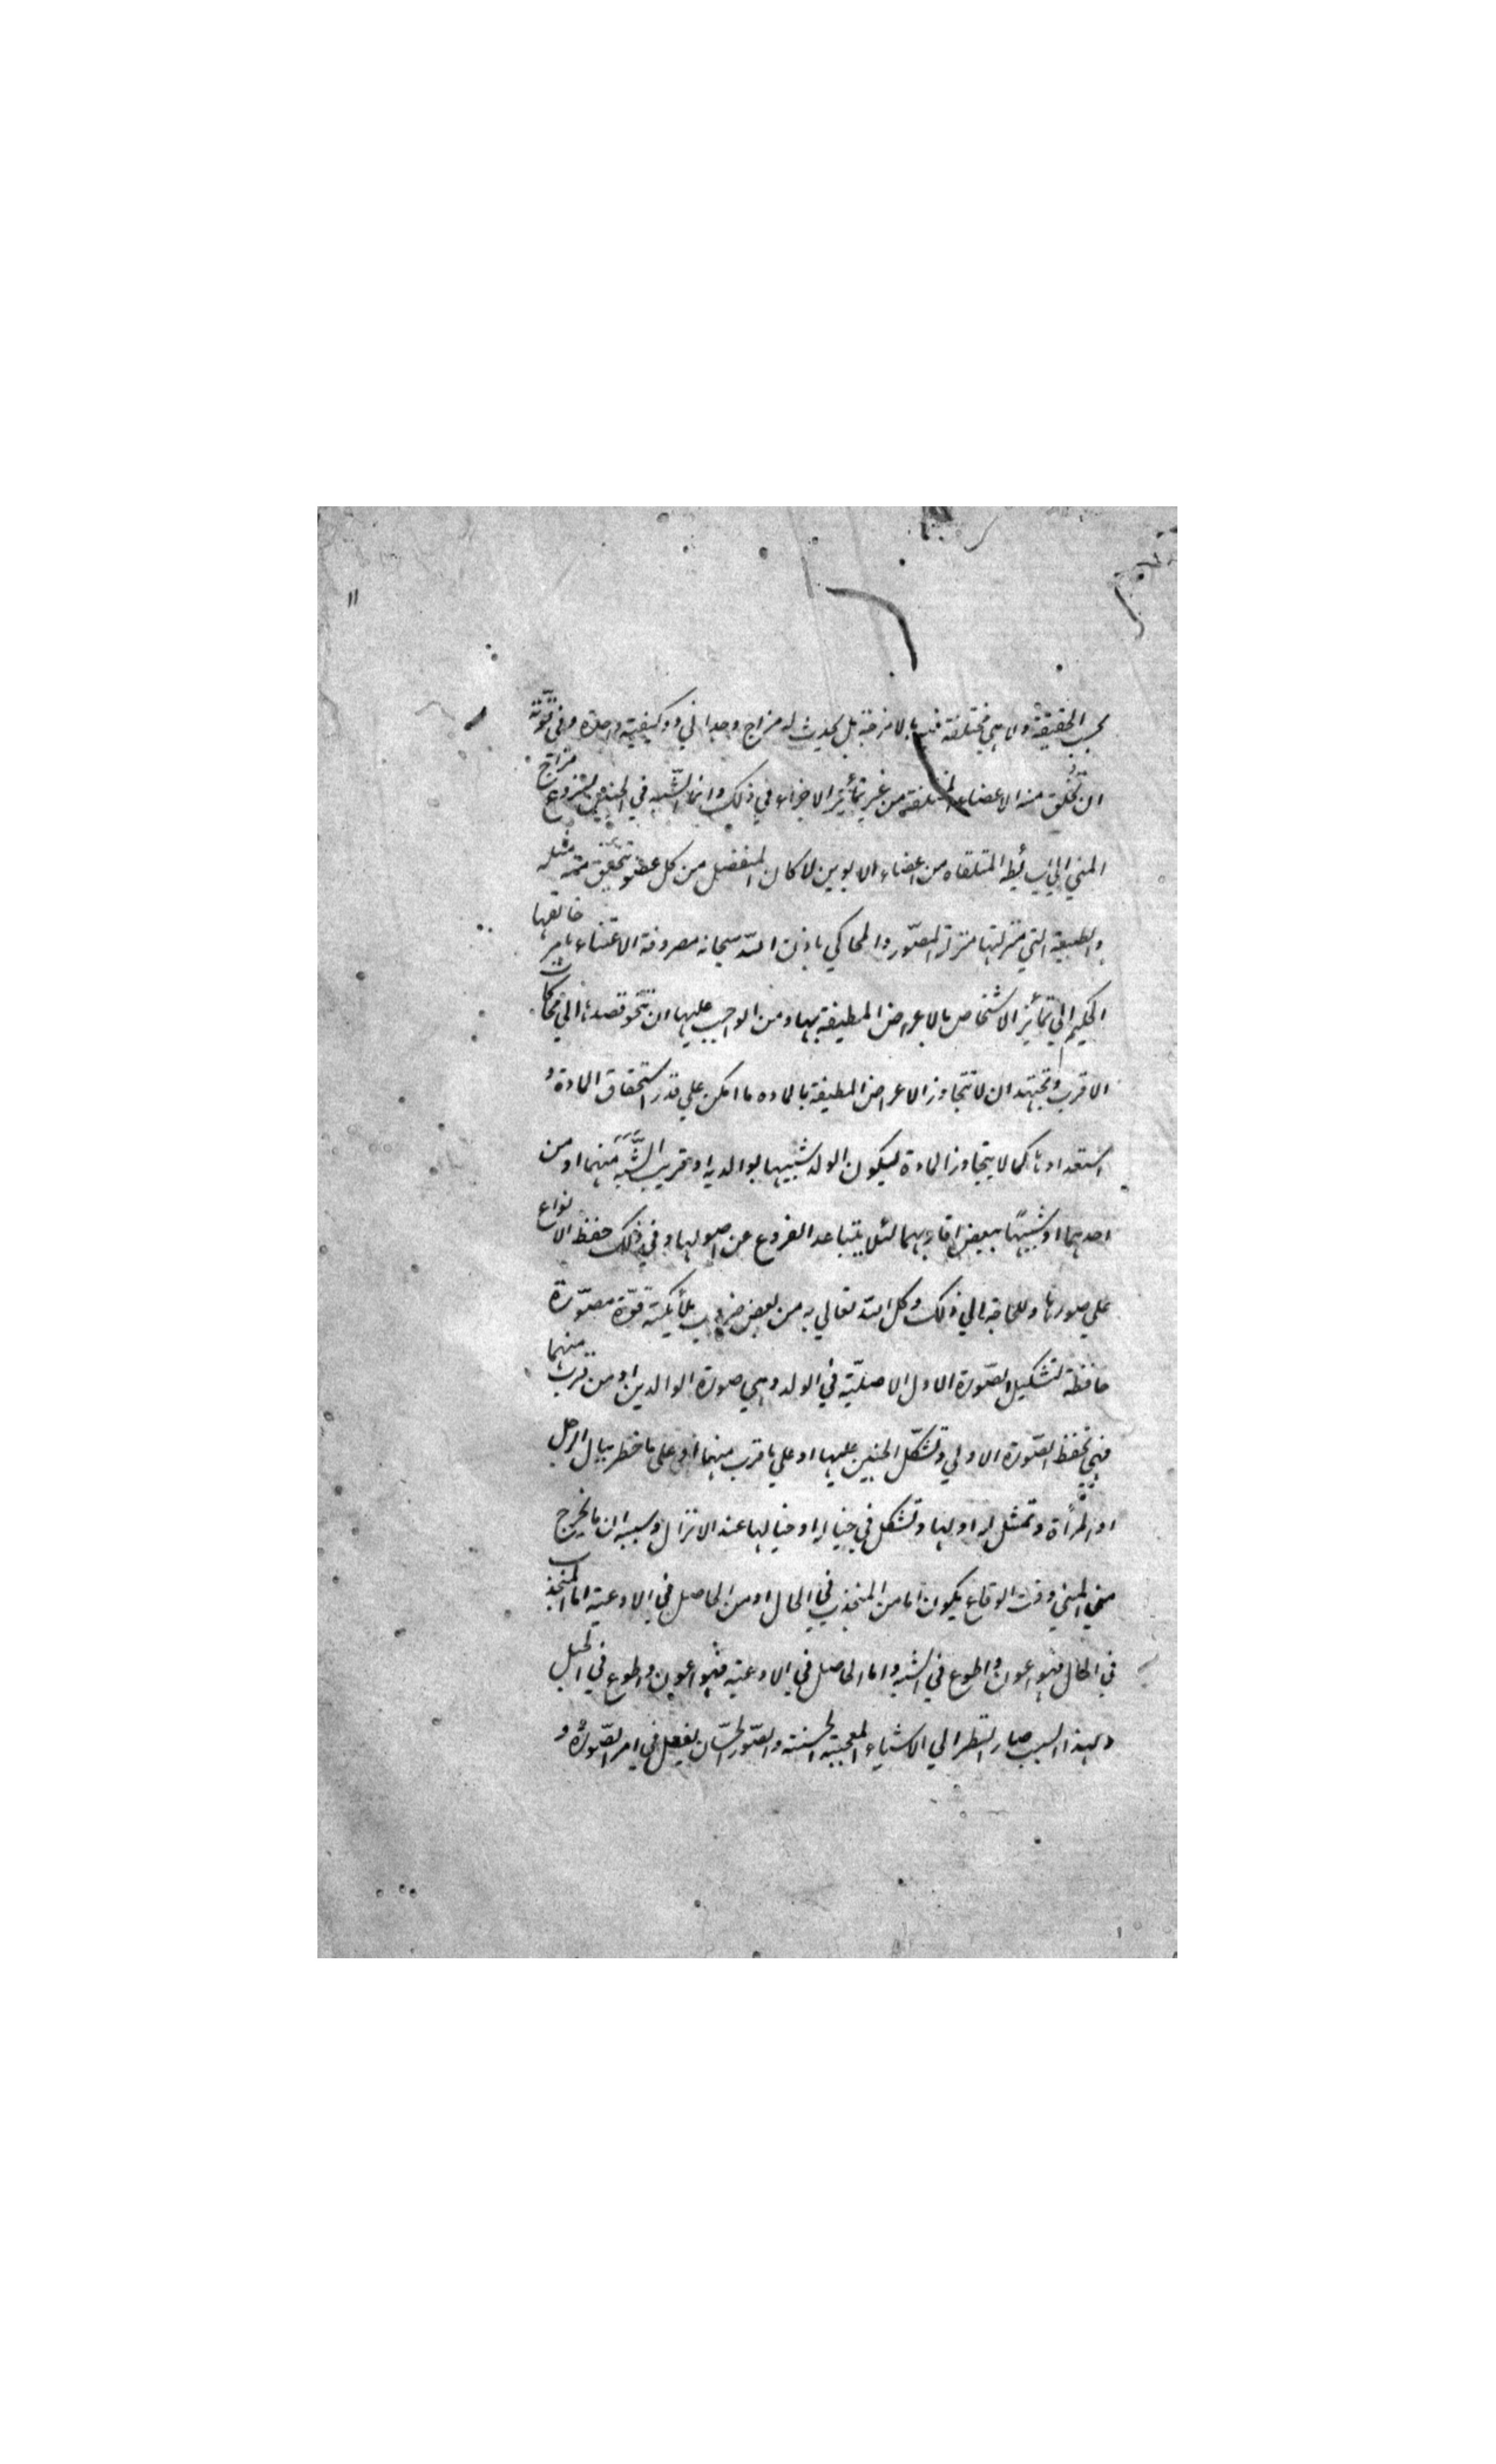 ۱۱
بحسب الحقيقة ولا هي مختلفة فيه بالامزجة بل يحدث له مزاج وحداني وكيفية واحدة وفي قوته
ان تخلق منه الاعضاء المختلفة من غير تمايز الاجزاء في ذلك وانما الشبه في الجنين لنزوع مزاج
المني الي بسائطه المتلقاه من اعضاء الابوين لا كان المنفصل من كل عضو تحقق منه مثله
والطبيعة التي منزلتها منزلة المصور والمحاكي باذن الله سبحانه مصروفة الاعتناء بامر خالقها
الحكيم الي تمايز الاشخاص بالاعراض المطيفة بها ومن الواجب عليها ان تنحو قصدها الي محاكات
الاقرب وتجتهد ان لا تتجاوز الاعراض المطيفة بالماده ما امكن علي قدر استحقاق المادة و
استعدادها كما لا يتجاوز المادة ليكون الولد شبيها بوالديه او قريب الشبه منهما او من
احدهما او شبيهًا ببعض اقاربهما لئلا يتباعد الفروع عن اصولها وفي ذلك حفظ الانواع
علي صورها وللحاجة الي ذلك وكل الله تعالي به من بعض ملائكته قوّة مصوّرة
حافظة لتشكيل الصّورة الاول الاصليّة في الولد وهي صورة الوالدين او من قرب منهما
فهي تحفظ الصّورة الاولي وتشكّل الجنين عليها او علي ما قرب منهما او على ما خطر ببال الرجل
او المرأة وتمثل له او لها وتشكل في خياله او خيالها عند الانزال وسببه ان ما يخرج
من المني وقت الوقاع يكون اما من المنجذب في الحال او من الحاصل في الاوعية اما المنجذب
في الحال فهو اعون واطوع في الشبه واما الحاصل في الاوعية فهو اعون واطوع في الحبل
ولهذا السبب صار النظر الي الاشياء المعجبة الحسنة والصّور الحسّان يفعل في امر الصّورة و